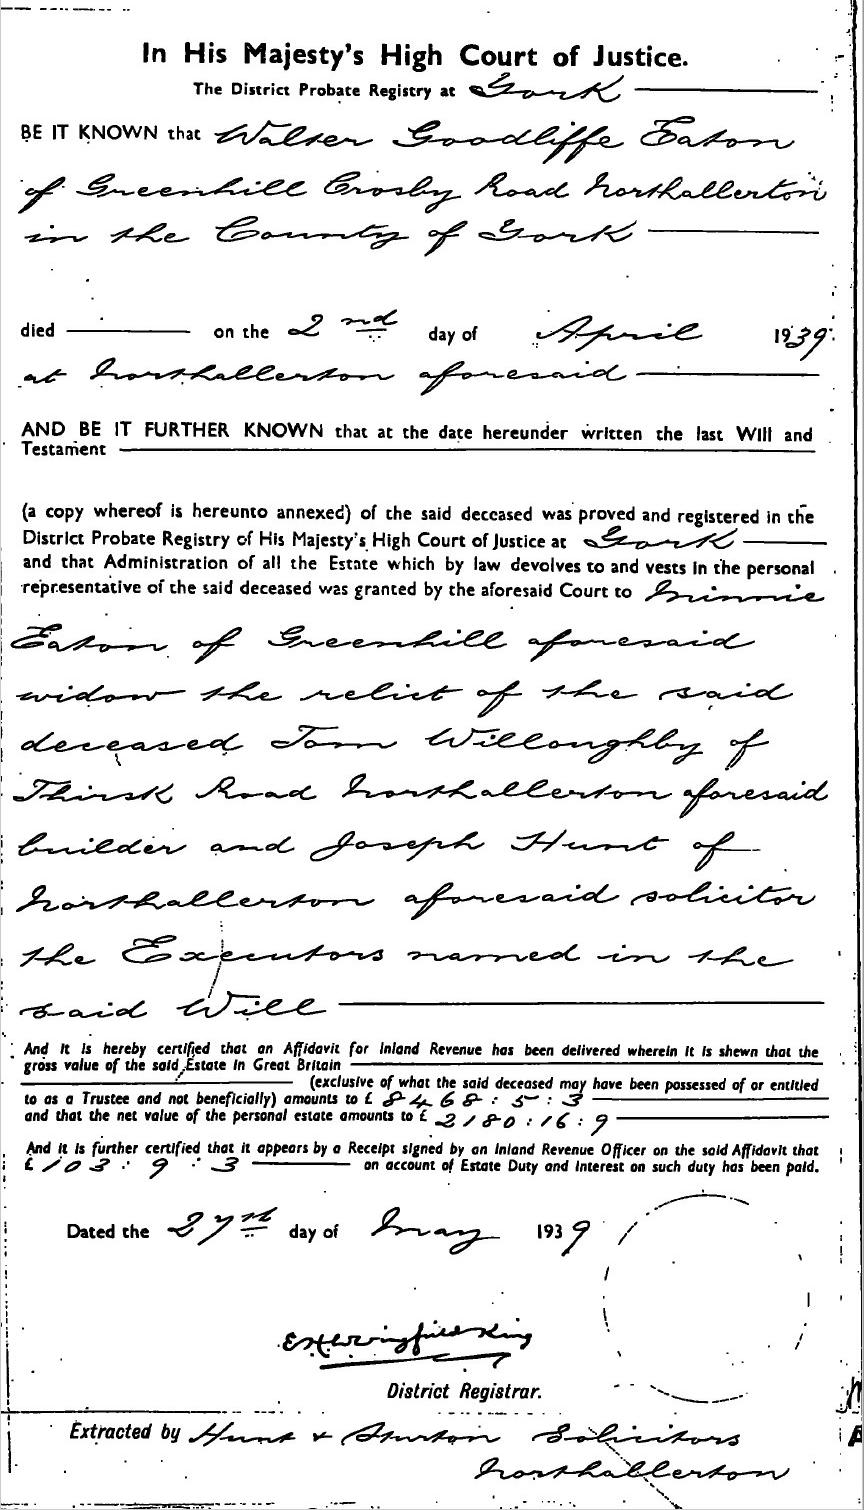 In His Majesty's High Court of Justice.
The District Probate Registry at York
BE IT KNOWN that Walter Goodliffe Eaton
of Greenhill Crosby Road Northallerton
in the County of York
died on the 2nd day of April 1939
at Northallerton aforesaid
AND BE IT FURTHER KNOWN that at the date hereunder written the last Will and
Testament
(a copy whereof is hereunto annexed) of the said deceased was proved and registered in the
District Probate Registry of His Majesty's High Court of Justice at York
and that Administration of all the Estate which by law devolves to and vests in the personal
representative of the said deceased was granted by the aforesaid Court to Minnie
Eaton of Greenhill aforesaid
widow the relict of the said
deceased Tom Willoughby of
Thirsk Road Northallerton aforesaid
builder and Joseph Hunt of
Northallerton aforesaid solicitor
the Executors named in the
said Will
And it is hereby certified that an Affidavit for Inland Revenue has been delivered wherein it is shewn that the
gross value of the said Estate in Great Britain
(exclusive of what the said deceased may have been possessed of or entitled
to as a Trustee and not beneficially) amounts to £ 8468 : 5 : 3
and that the net value of the personal estate amounts to £ 2180 : 16 : 9
And it is further certified that it appears by a Receipt signed by an Inland Revenue Officer on the said Affidavit that
£ 103 : 9 : 3 on account of Estate Duty and interest on such duty has been paid.
Dated the 27th day of May 1939
King
District Registrar.
Extracted by Hunt & Sturton Solicitors
Northallerton